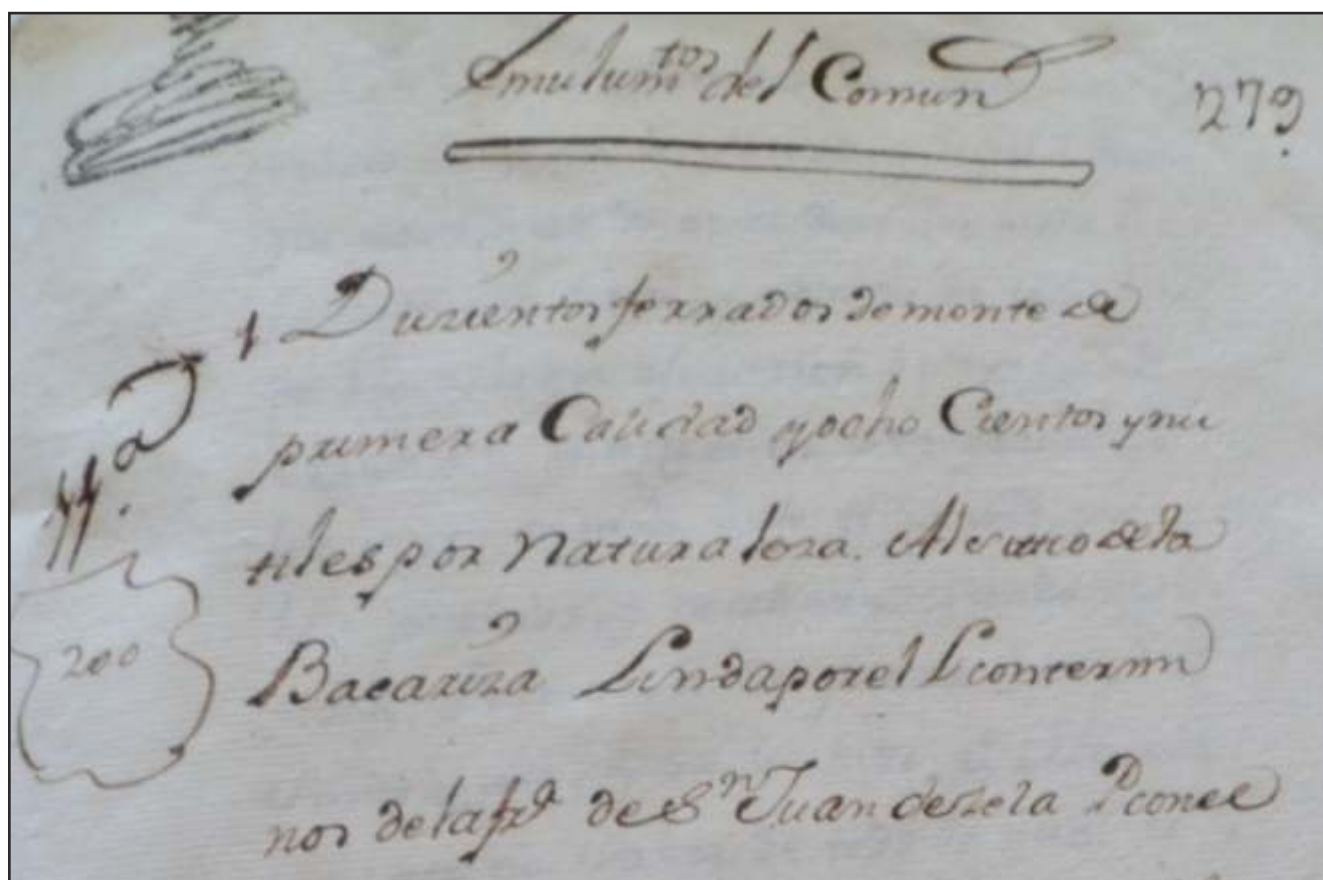 Emulumtos del Comun
279
1 Duzientos ferrados de monte de
primera Calidad y ocho Cientos ynu
tiles por Naturaleza. Al sitio de la
200
Bacariza Linda por el L con termi
nos de la fra de Sn Juan de Seta P con el